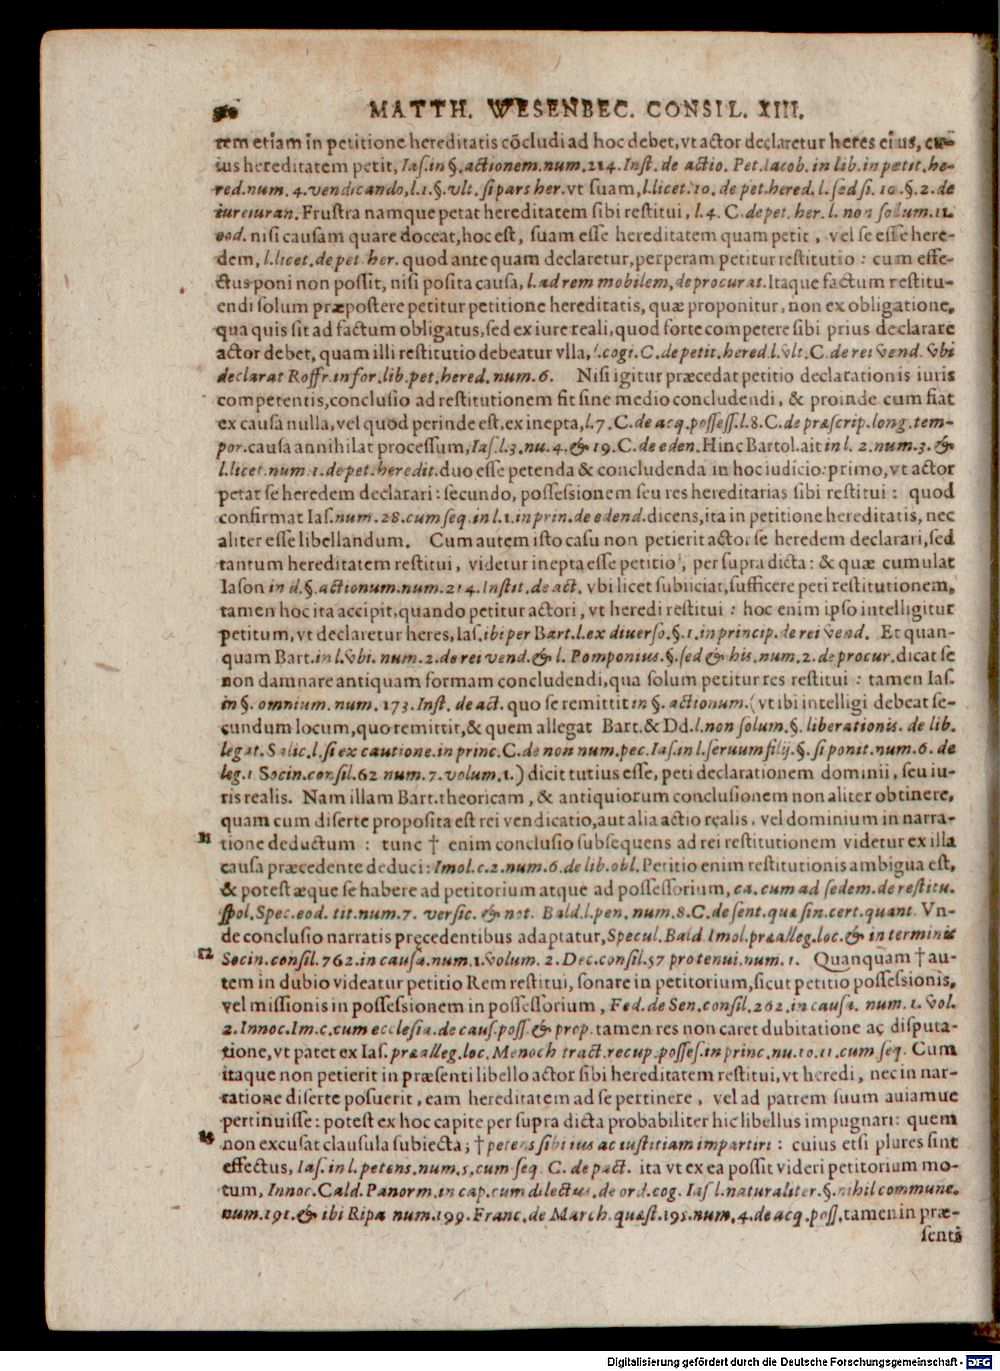 MATTH. WESENBEC. CONSIL. XIII.
rem etiam in petitione hereditatis cõcludi ad hoc debet, vt actor declaretur heres eius, cu-
ius hereditatem petit, Ias. in §. actionem. num. 214. Inst. de actio. Pet. Iacob. in lib. in petit. he-
red. num. 4. vendicando, l. 1. §. vlt. si pars her. vt suam, l. licet. 10. de pet. hered. l. sed si. 10. §. 2. de
iureiuran. Frustra namque petat hereditatem sibi restitui, l. 4. C. de pet. her. l. non solum. 11.
eod. nisi causam quare doceat, hoc est, suam esse hereditatem quam petit, vel se esse here-
dem, l. licet. de pet. her. quod ante quam declaretur, perperam petitur restitutio: cum effe-
ctus poni non possit, nisi posita causa, l. ad rem mobilem, de procurat. Itaque factum restitu-
endi solum præpostere petitur petitione hereditatis, quæ proponitur, non ex obligatione,
qua quis sit ad factum obligatus, sed ex iure reali, quod forte competere sibi prius declarare
actor debet, quam illi restitutio debeatur vlla, l. cogi. C. de petit. hered. l. vlt. C. de rei vend. vbi
declarat Roffr. in for. lib. pet. hered. num. 6. Nisi igitur præcedat petitio declarationis iuris
competentis, conclusio ad restitutionem fit sine medio concludendi, & proinde cum fiat
ex causa nulla, vel quod perinde est, ex inepta, l. 7. C. de acq. possess. l. 8. C. de præscrip. long. tem-
por. causa annihilat processum, Ias. l. 3. nu. 4. & 19. C. de eden. Hinc Bartol. ait in l. 2. num. 3. &
l. licet. num. 1. de pet. heredit. duo esse petenda & concludenda in hoc iudicio: primo, vt actor
petat se heredem declarari: secundo, possessionem seu res hereditarias sibi restitui: quod
confirmat Ias. num. 28. cum seq. in l. 1. in prin. de edend. dicens, ita in petitione hereditatis, nec
aliter esse libellandum. Cum autem isto casu non petierit actor se heredem declarari, sed
tantum hereditatem restitui, videtur inepta esse petitio, per supra dicta: & quæ cumulat
Iason in d. §. actionum. num. 214. Instit. de act. vbi licet subiiciat, sufficere peti restitutionem,
tamen hoc ita accipit, quando petitur actori, vt heredi restitui: hoc enim ipso intelligitur
petitum, vt declaretur heres, Ias. ibi per Bart. l. ex diuerso. §. 1. in princip. de rei vend. Et quan-
quam Bart. in l. vbi. num. 2. de rei vend. & l. Pomponius. §. sed & his. num. 2. de procur. dicat se
non damnare antiquam formam concludendi, qua solum petitur res restitui: tamen Ias.
in §. omnium. num. 173. Inst. de act. quo se remittit in §. actionum. (vt ibi intelligi debeat se-
cundum locum, quo remittit, & quem allegat Bart. & Dd. l. non solum. §. liberationis. de lib.
legat. Salic. l. si ex cautione. in princ. C. de non num. pec. Ias. in l. seruum filij. §. si ponit. num. 6. de
leg. 1 Socin. consil. 62 num. 7. volum. 1.) dicit tutius esse, peti declarationem dominii, seu iu-
ris realis. Nam illam Bart. theoricam, & antiquiorum conclusionem non aliter obtinere,
quam cum diserte proposita est rei vendicatio, aut alia actio realis, vel dominium in narra-
tione deductum: tunc † enim conclusio subsequens ad rei restitutionem videtur ex illa
causa præcedente deduci: Imol. c. 2. num. 6. de lib. obl. Petitio enim restitutionis ambigua est,
& potest æque se habere ad petitorium atque ad possessorium, ca. cum ad sedem. de restitu.
spol. Spec. eod. tit. num. 7. versic. & not. Bald. l. pen. num. 8. C. de sent. quæ sin. cert. quant. Vn-
de conclusio narratis precedentibus adaptatur, Specul. Bald. Imol. præalleg. loc. & in terminis
52 Socin. consil. 762. in causa. num. 1. volum. 2. Dec. consil. 57 protenui. num. 1. Quanquam † au-
tem in dubio videatur petitio Rem restitui, sonare in petitorium, sicut petitio possessionis,
vel missionis in possessionem in possessorium, Fed. de Sen. consil. 262. in causa. num. 1. vol.
2. Innoc. Im. c. cum ecclesia. de caus. poss. & prop. tamen res non caret dubitatione ac disputa-
tione, vt patet ex Ias. præalleg. loc. Menoch tract. recup. posses. in princ. nu. 10. 11. cum seq. Cum
itaque non petierit in præsenti libello actor sibi hereditatem restitui, vt heredi, nec in nar-
ratione diserte posuerit, eam hereditatem ad se pertinere, vel ad patrem suum auiamue
pertinuisse: potest ex hoc capite per supra dicta probabiliter hic libellus impugnari: quem
non excusat clausula subiecta; † petens sibi ius ac iustitiam impartiri: cuius etsi plures sint
effectus, Ias. in l. petens. num. 5. cum seq. C. de pact. ita vt ex ea possit videri petitorium mo-
tum, Innoc. Cald. Panorm. in cap. cum dilectus. de ord. cog. Ias l. naturaliter. §. nihil commune.
num. 191. & ibi Ripa num. 199. Franc. de March. quæst. 195. num. 4. de acq. poss. tamen in præ-
senti
Digitalisierung gefördert durch die Deutsche Forschungsgemeinschaft - DFG